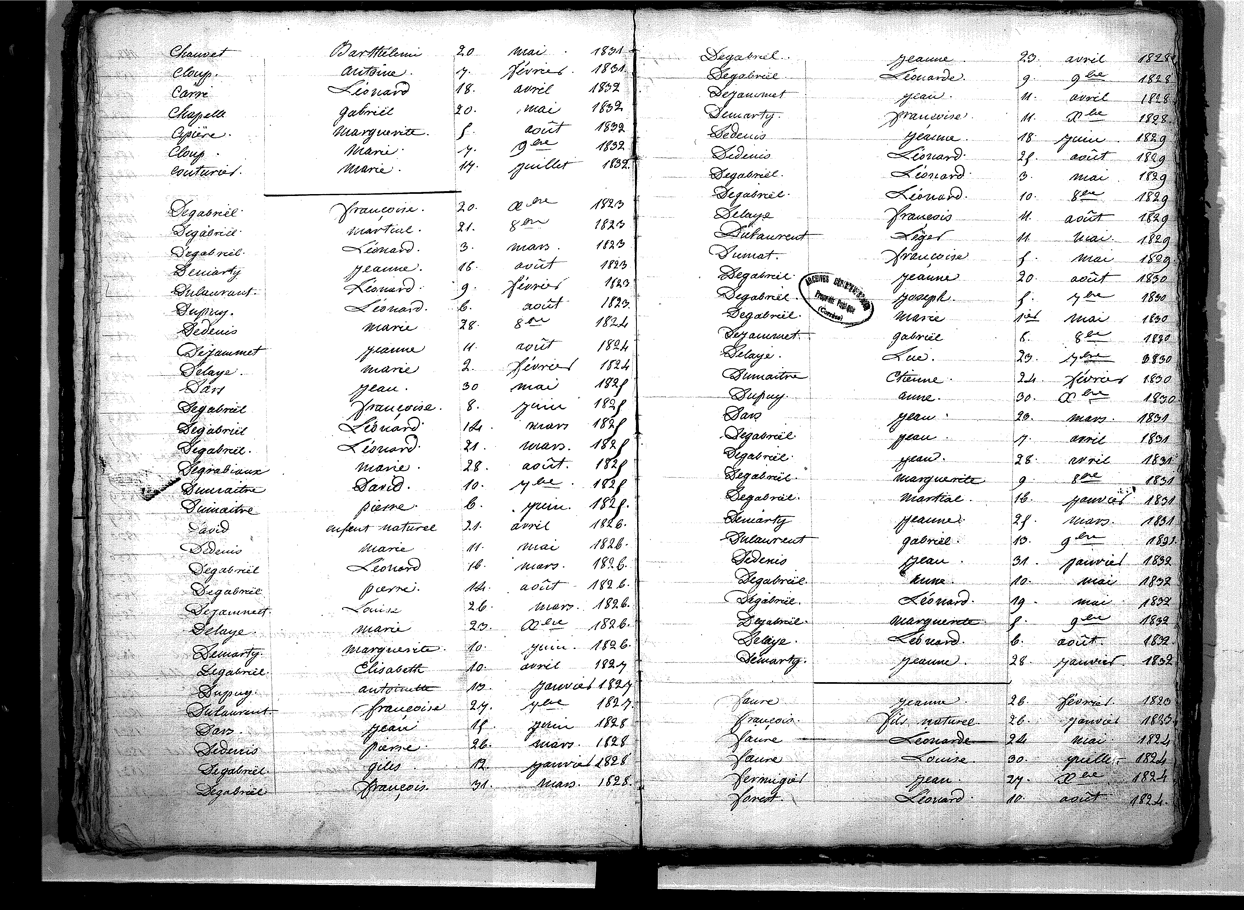 Chauvet Barthélemi 20 mai 1831
Cloup. antoine. 7. février 1831.
Carré Léonard 18. avril 1832
Chapelle gabriël 20. mai 1832
marguerite. 5. août 1832
Cloup. marie. 7. 9bre 1832
couturier. marie. 17. juillet 1832.
Degabriël. françoise. 20. Xbre 1823
Degabriël martial. 21. 8bre 1823
Degabriël Léonard. 3. mars. 1823
Demarty jeanne. 16. août 1823
Dulaurant. Léonard. 9. février 1823
Dupuy. Léonard. 6. août 1823.
Dedenis marie 28. 8bre 1824
Dejammet jeanne 11. août 1824
Delaye. marie 2. février 1824
Dars jean. 30 mai 1825
Degabriël françoise. 8. juin 1825
Degabriël Léonard. 14. mars 1825
Degabriël. Léonard 21. mars. 1825
Degrabiaux marie. 28. août. 1825
Dumaitre David. 10. 7bre 1825
Dumaitre pierre. 6. juin. 1825.
David enfent naturel 21. avril 1826.
Dedenis marie 11. mai 1826.
Degabriël Léonard 16. mars. 1826.
Degabriël pierre. 14. août 1826.
Dejammet. Louise 26. mars. 1826.
Delaye. marie 23. Xbre 1826.
Demarty. marguerite. 10. juin. 1826.
Degabriël. Elisabeth 10. avril 1827
Dupuy. antoinette 13. janvier 1827
Dulaurent. françoise 27. 7bre 1827.
Dars. jean 15. juin 1828
Dedenis pierre. 26. mars. 1828
Degabriël. giles. 12. janvier 1828
Degabriël françois. 31. mars. 1828.
Degabriël. jeanne. 23. avril 1828
Degabriël. Léonarde. 9. 9bre 1828
Dejammet jean. 11. avril 1828
Demarty. françoise. 11. Xbre 1828
Dedenis jeanne. 18. juin. 1829
Dedenis Léonard. 25. août 1829
Degabriël. Léonard. 3. mai. 1829
Degabriël. Léonard. 10. 8bre 1829
Delaye françois 11. août 1829
Dulaurent Léger 11. mai. 1829
Dumat. françoise 5. mai 1829.
Degabriël. jeanne 20. août 1830
Degabriël. joseph. 5. 7bre 1830.
Degabriël. marie 1er mai 1830
Dejammet. gabriël 6. 8bre 1830
Delaye. Luc. 23. 7bre 1830
Dumaitre Etienne. 24. février 1830
Dupuy. anne. 30. Xbre 1830.
Dars jean. 23. mars. 1831
Degabriël jean. 7. avril 1831
Degabriël. jean. 28. avril 1831
Degabriël. marguerite. 9 8bre 1831
Degabriël. martial. 16. janvier 1831
Demarty jeanne. 25. mars. 1831
Dulaurent gabriël. 13. 9bre 1831
Dedenis jean. 31. janvier 1832
Degabriël anne. 10. mai 1832
Dégabriël. Léonard. 19. mai 1832
Dejabriël. marguerite. 5. 9bre 1832
Delaye. Léonard. 6. août. 1832
Demarty. jeanne. 28. janvier 1832.
faure jeanne. 26. février. 1823
françois. fils naturel 26. janvier 1823
faure Léonarde 24. mai 1824
faure. Louise 30. juillet 1824
fermigier jean. 27. Xbre 1824
forest. Léonard. 10. août 1824.
ARCHIVES
Propriété Publique
(Corrèze)